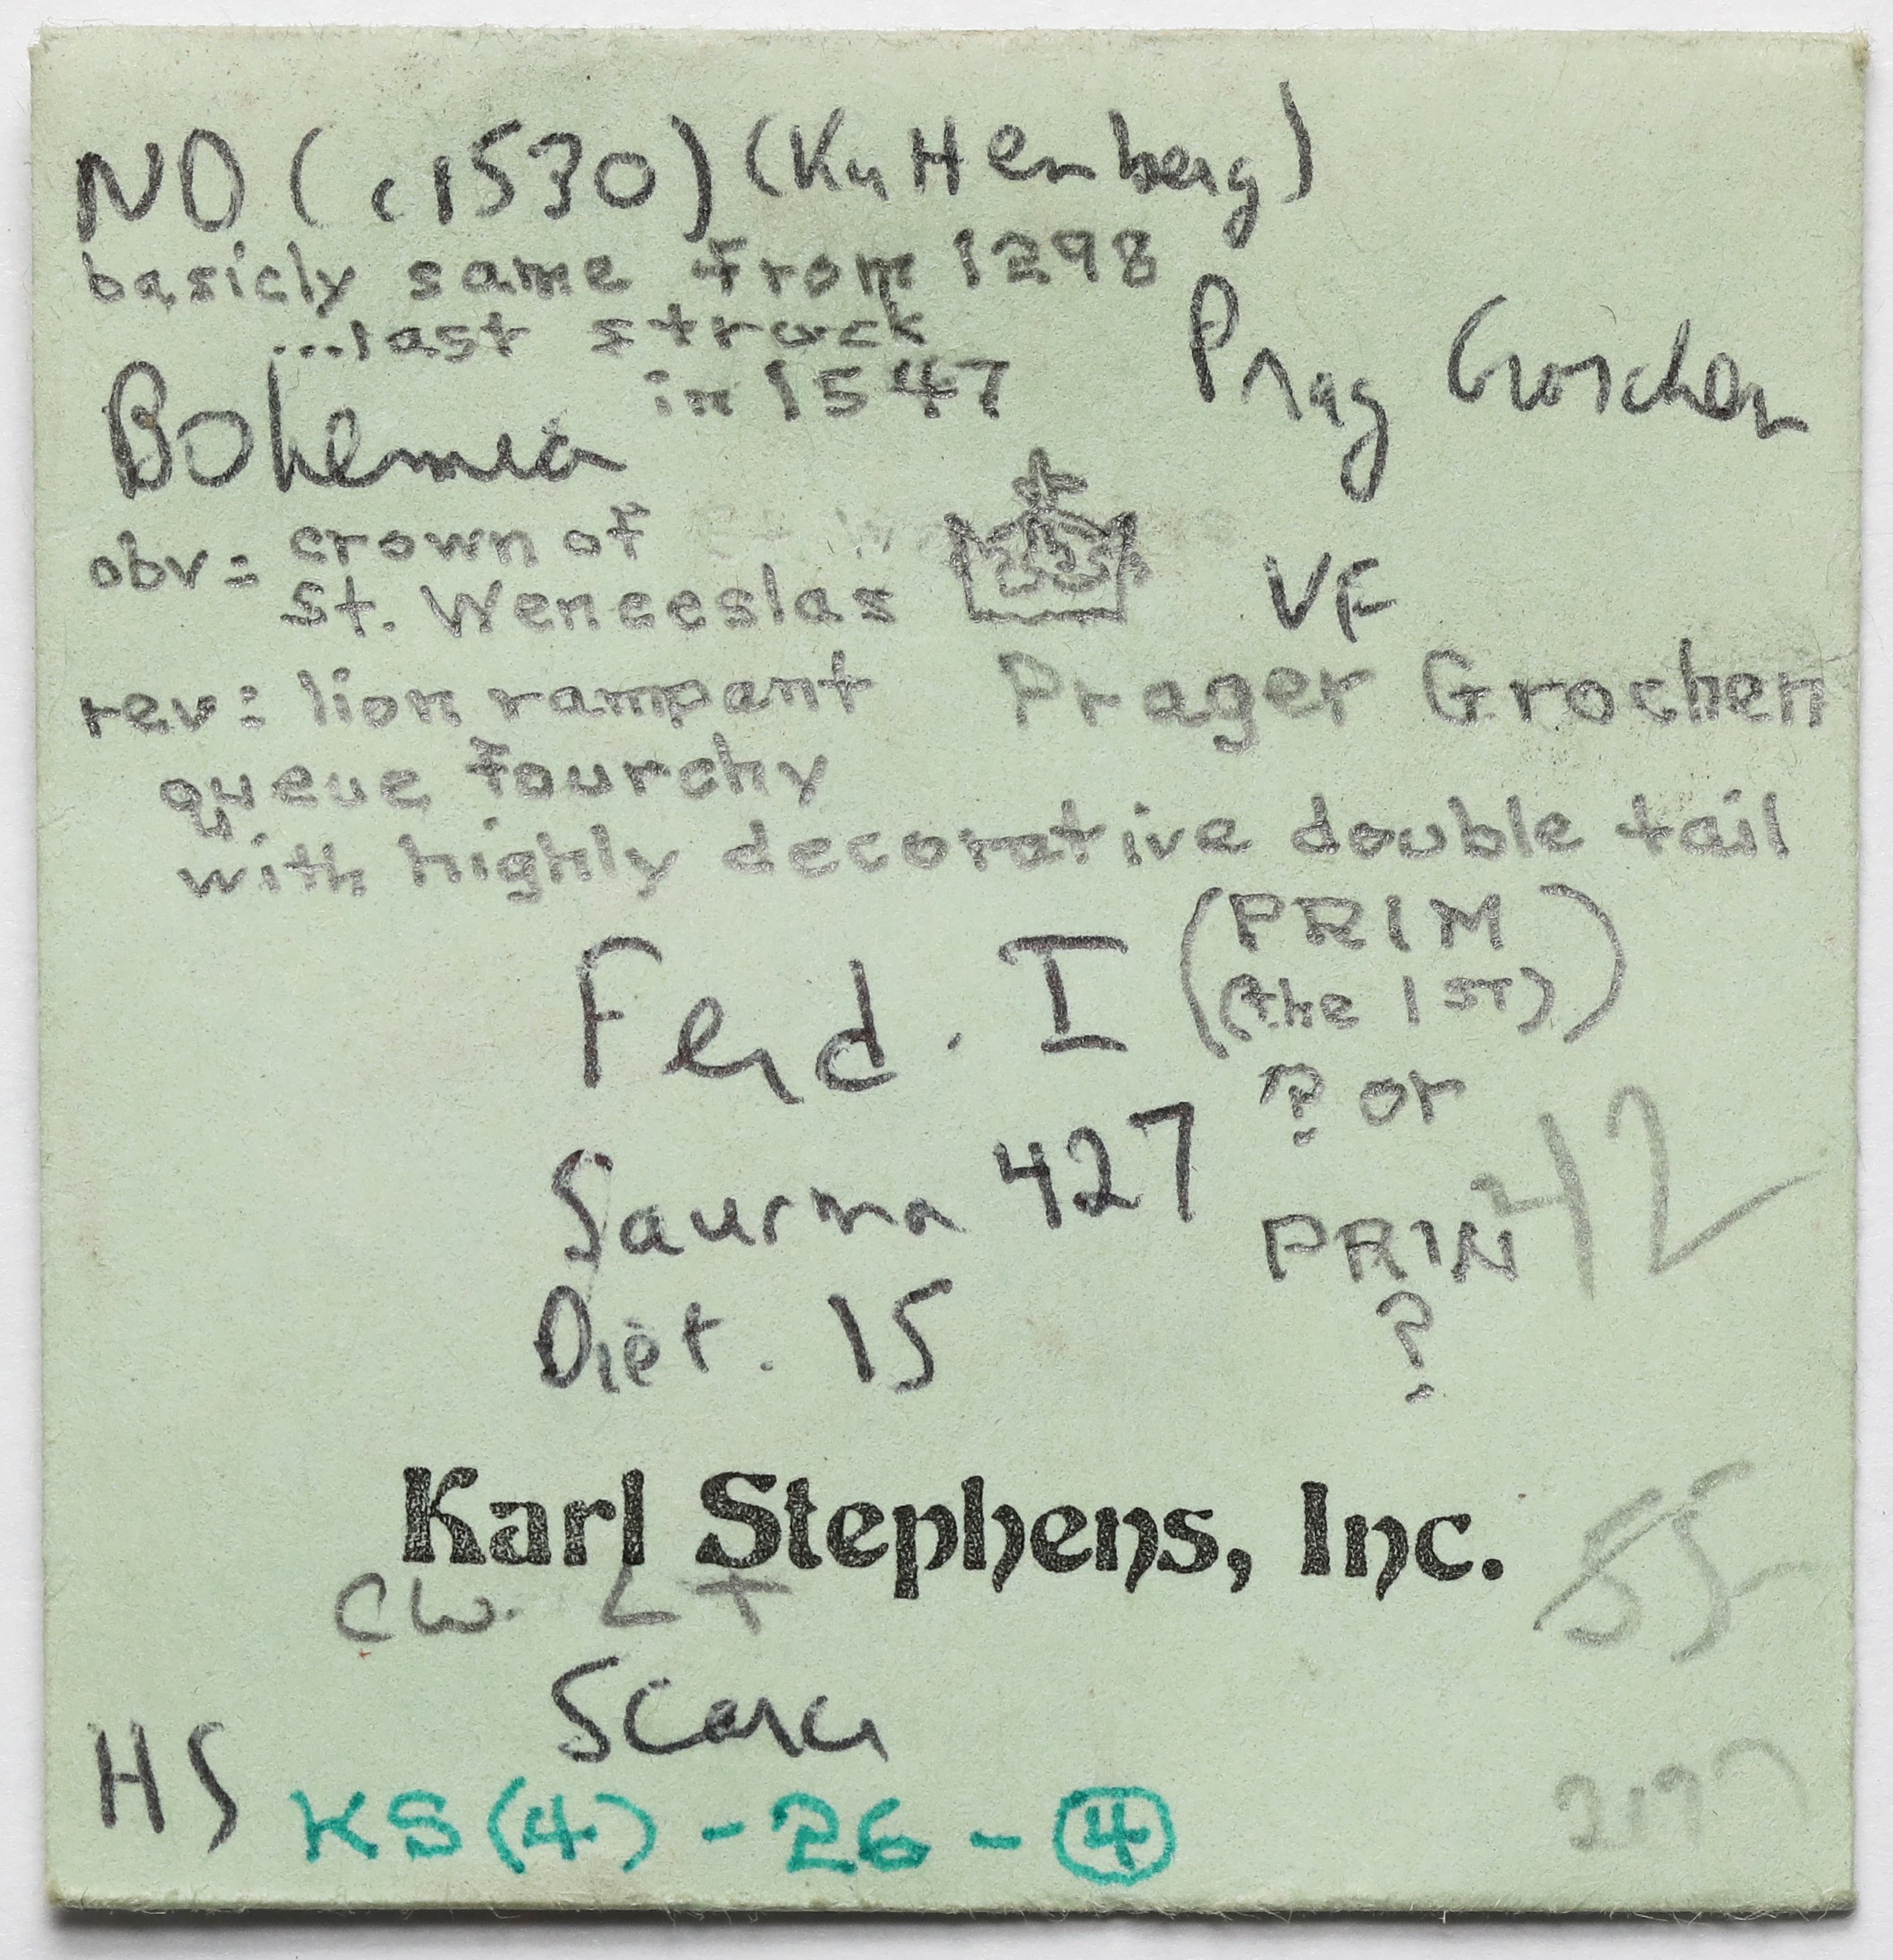 ND (c1530) (Kuttenberg)
basicly same from 1298
...last struck
in 1547
Prag Groschen
Bohemia
obv = crown of
St. Wenceslas
VF
rev: lion rampant
Prager Grochen
queue fourchy
with highly decorative double tail
Ferd. I (PRIM
(the 1ST))
? or
Saurma 427
PRIN
?
42
Diet. 15
Karl Stephens, Inc.
55-
CW. LT
Scarce
HS
KS(4)-26-4